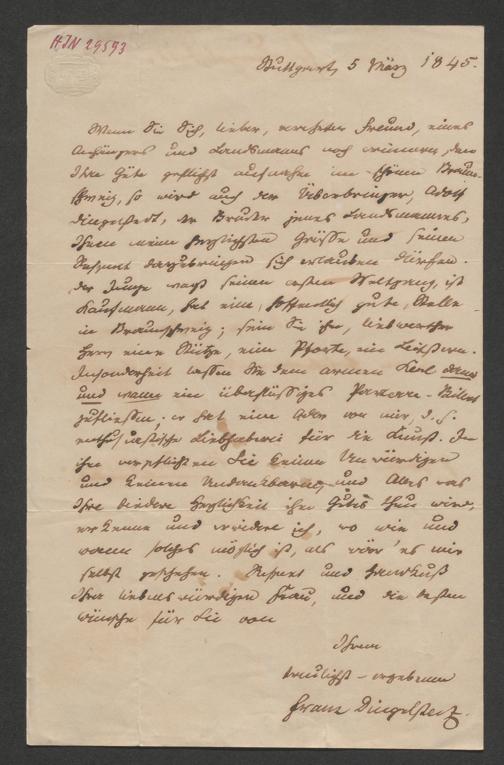 HJN 29593
Stuttgart, 5 März 1845.
Wenn Sie Sich, lieber, verehrter Freund, eines
Anhängers und Landsmanns noch erinnern, den
Ihre Güte gastlichst aufnahm im schönen Braun-
schweig, so wird auch der Überbringer, Adolf
Dingelstedt, der Bruder jenes Landsmannes,
Ihnen meine herzlichsten Grüße und seinen
Respect darzubringen sich erlauben dürfen.
Der Junge wagt seinen ersten Weltgang, ist
Kaufmann, hat eine, hoffentlich gute, Stelle
in Braunschweig; seien Sie ihm, liebwerther
Herr eine Stütze, eine Pforte, ein
Insonderheit lassen Sie dem armen Kerl dann
und wann ein überflüssiges Parterre-Billet
zufließen; er hat eine Ader von mir, d. h.
enthusiastische Liebhaberei für die Kunst. In
ihm verpflichten Sie keinen Unwürdigen
und keinen Undankbaren, und Alles was
Ihre biedere Herzlichkeit ihm Gutes thun wird,
erkenne und erwidere ich, wo wie und
wann solches möglich ist, als wär' es mir
selbst geschehen. Respect und Handkuß
Ihrer liebenswürdigen Frau, und die besten
Wünsche für Sie von
Ihrem
treulichst-ergebenen
Franz Dingelstedt.